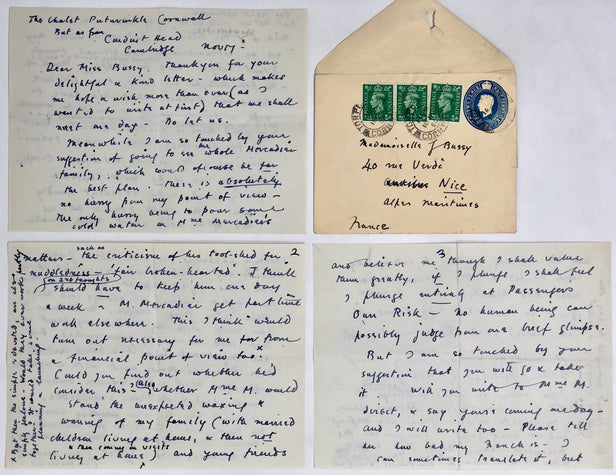 The Chalet Polurrinkle Cornwall
But as from
Conduit Head
Cambridge
Nov 5
Dear Miss Bussy. Thank you for your
delightful & kind letter - which makes
me hope & wish more than ever (as I
wanted to write at first) that we shall
meet one day - Do let us.
Meanwhile I am so touched by your
suggestion of going to see the whole Mercadier
family, which would of course be far
the best plan. There is absolutely
no hurry from my point of view -
The only hurry being to pour some
cold water on Mme Mercadier's
Mademoiselle J Bussy
40 rue Verdi
Nice
Alpes Maritimes
France
2
matters - such as the criticism of his tool-shed for
muddledness - fair broken-hearted. I think
(on 2nd thoughts)
I should have to keep him one day
a week - M. Mercadier get part time
work elsewhere. This I think would
turn out necessary for me too from
a financial point of view too. x
Could you find out whether he'd
consider this - & (also) whether Mme M. would
stand the unexpected waxing &
waning of my family (with married
children living at home, & then not
x then coming on visits
living at home) and young friends
x But then the simple & devoted, are also
simply jealous - Would they ever work
together? It would take some
3
and believe me though I shall value
them greatly, if I plunge I shall feel
I plunge entirely at Passenger's
Own Risk - No human being can
possibly judge from one brief glimpse.
But I am so touched by your
suggestion that you will go & take
it. Will you write to Mme M.
direct, & say you're coming one day -
and I will write too - Please tell
her how bad my French is - I
can sometimes translate it, but